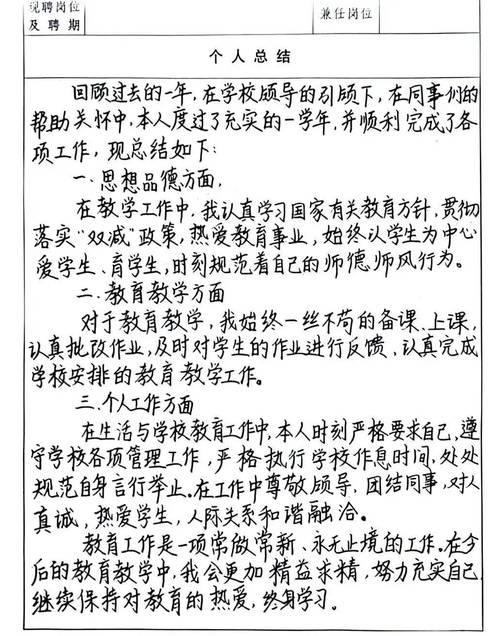 现聘岗位
及聘期
兼任岗位
个人总结
回顾过去的一年，在学校领导的引领下，在同事们的
帮助关怀中，本人度过了充实的一学年，并顺利完成了各
项工作，现总结如下：
一.思想品德方面.
在教学工作中，我认真学习国家有关教育方针，贯彻
落实"双减"政策，热爱教育事业，始终以学生为中心
爱学生、育学生，时刻规范着自己的师德师风行为。
二.教育教学方面
对于教育教学，我始终一丝不苟的备课、上课，
认真批改作业，及时对学生的作业进行反馈、认真完成
学校安排的教育教学工作。
三.个人工作方面
在生活与学校教育工作中，本人时刻严格要求自己，遵
守学校各项管理工作，严格执行学校作息时间，处处
规范自身言行举止。在工作中尊敬领导，团结同事，对人
真诚，热爱学生，人际关系和谐融洽。
教育工作是一项常做常新、永无止境的工作。在今
后的教育教学中，我会更加精益求精，努力充实自己
继续保持对教育的热爱，终身学习。